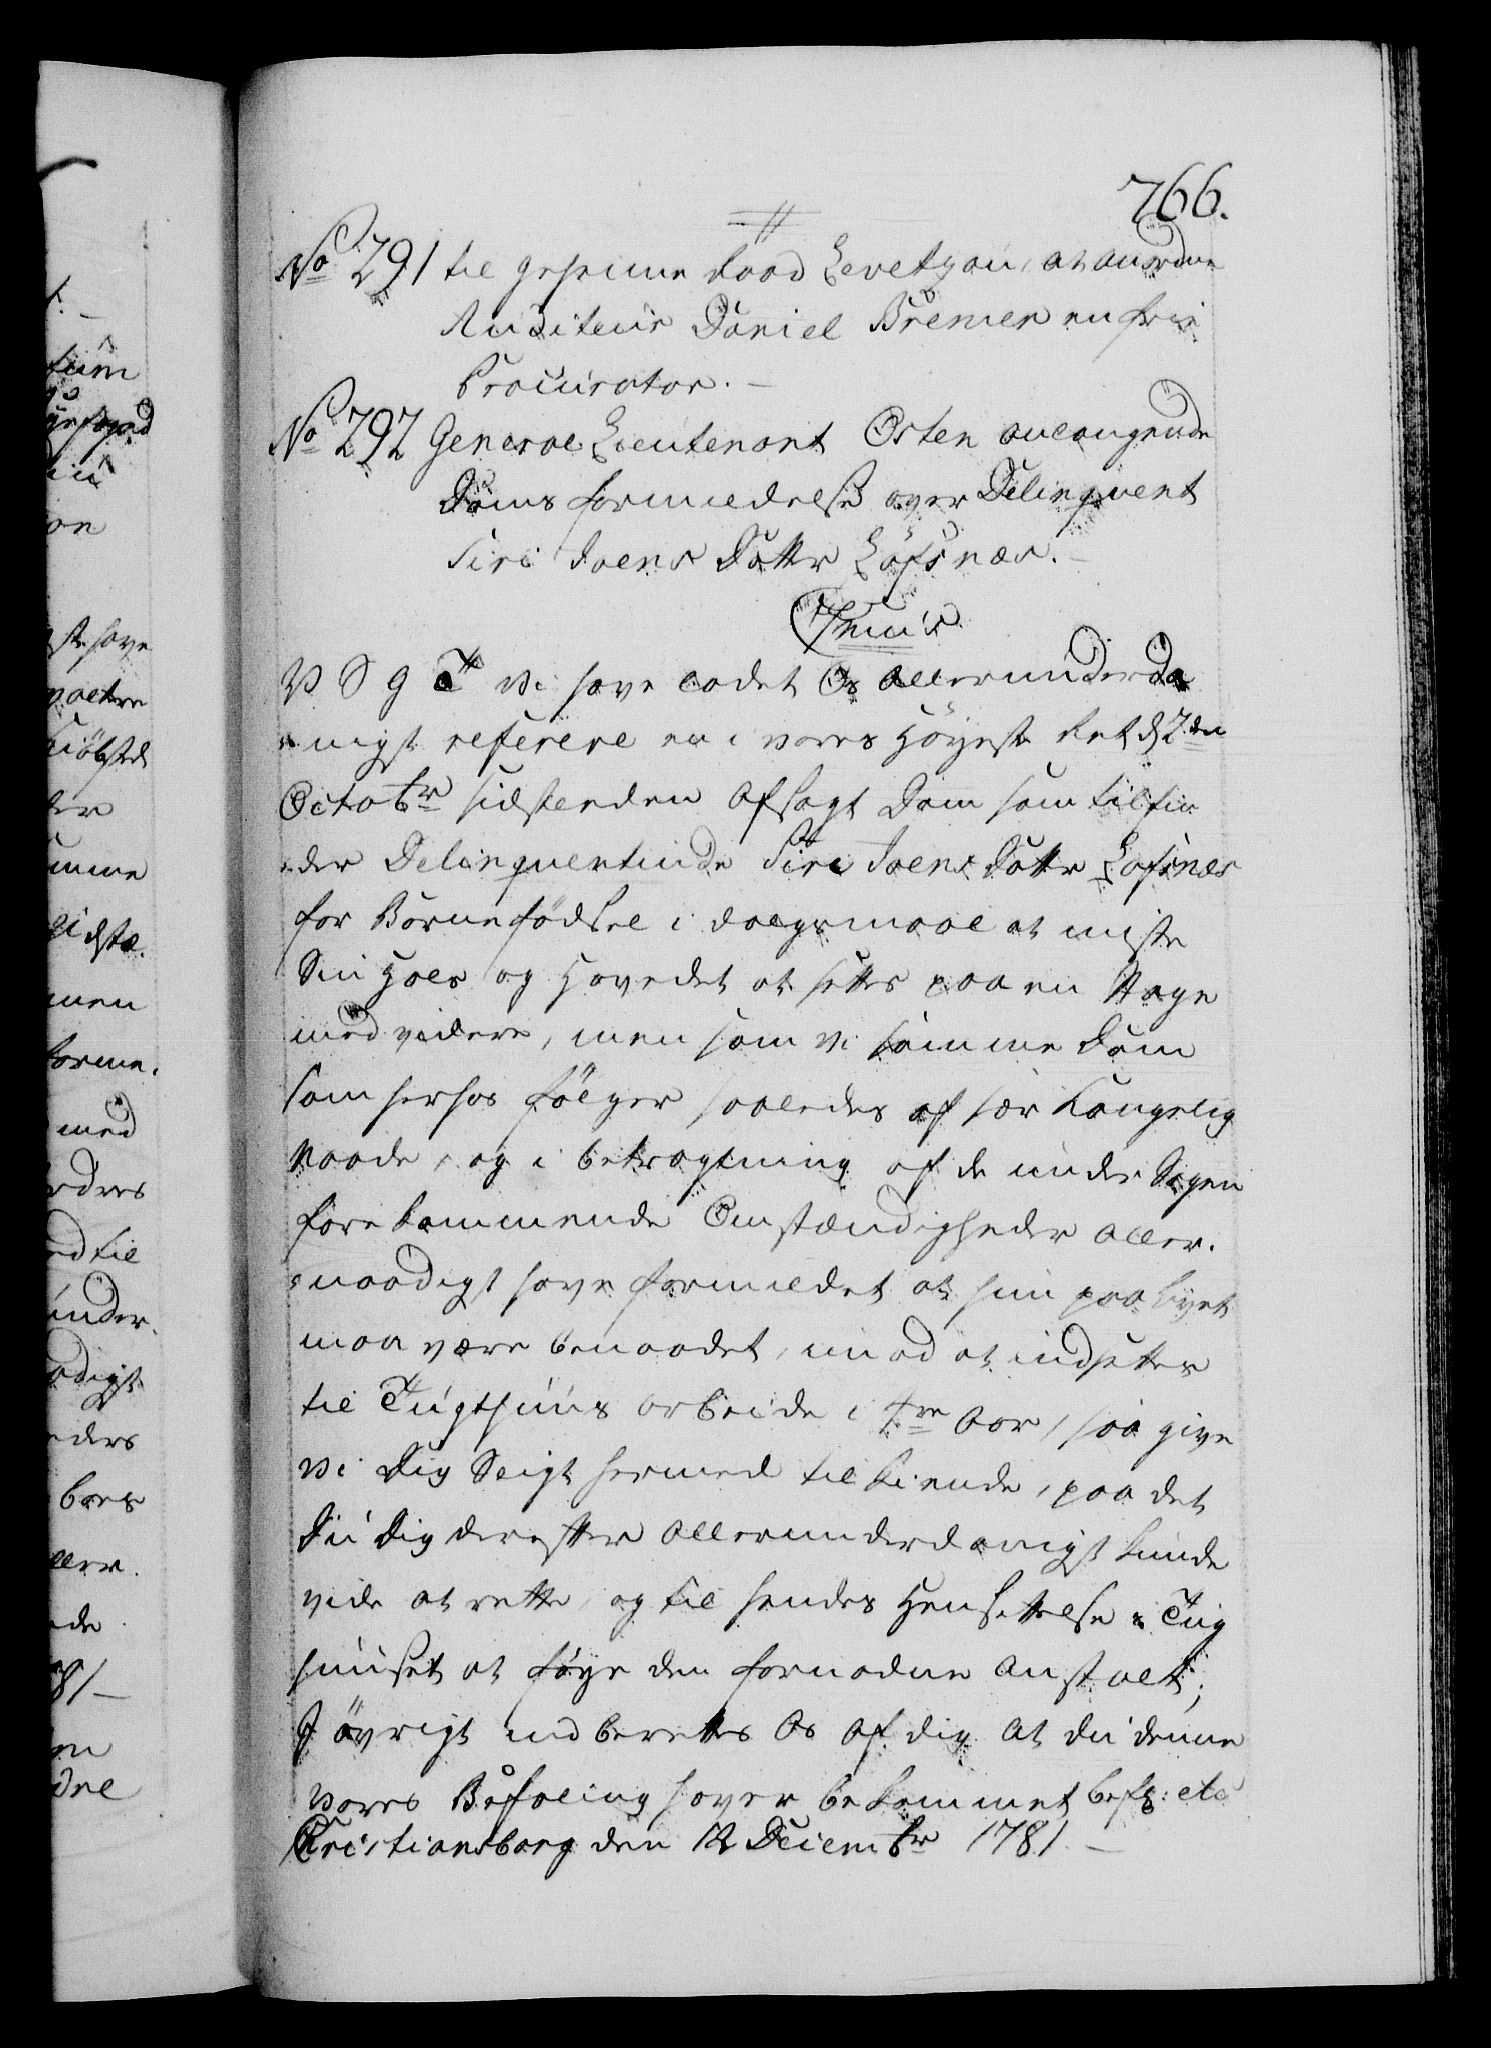 766.
No 291 til geheime Raad Levetzau, at anordne
Auditeur Daniel Bremer en frie
Procurator.
No 292 General Lieutenant Osten anlangende
Doms formildelse over Delinqvent
Siri Joens Datter Løfsnæs.
Thuus
V S g T Vi have ladet Os allerunderda
nigst referere en i vores Höyeste Ret d. 2den
Octobr sidstleden afsagt Dom som tilfin
der Delinquentinde Siri Joens Datter Løfsnæs
for Börnefödsel i dølgsmaal at miste
Sin Hals og Hovedet at settes paa en Stage
med videre, men som Vi samme Dom
som herhos fölger saaledes af sær Kongelig
Naade, og i betragtning af de under Sagen
forekommende Omstændigheder aller-
naadigst have formildet at hun paa Livet
maa være benaadet, imod at indsettes
til Tugthuus arbeide i 4re Aar, saa give
Vi Dig Sligt hermed til kiende, paa det
Du Dig derefter allerunderdanigst kunde
vide at rette, og til hendes Hensettelse i Tug
huuset at föye den fornødne Anstalt;
I övrigt indberettes Os af dig at du denne
vores Befaling haver bekommet bef: etc
Christiansborg den 12 Decembr 1781.